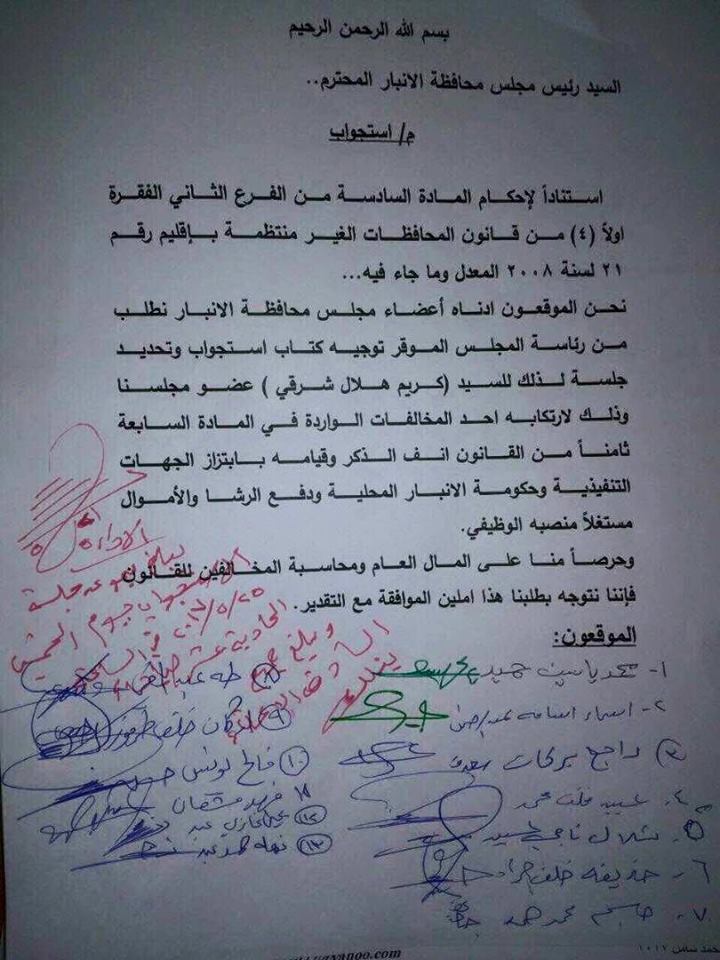 بسم الله الرحمن الرحيم
السيد رئيس مجلس محافظة الانبار المحترم..
م/ استجواب
استناداً لإحكام المادة السادسة من الفرع الثاني الفقرة
اولاً (٤) من قانون المحافظات الغير منتظمة بإقليم رقم
٢١ لسنة ٢٠٠٨ المعدل وما جاء فيه...
نحن الموقعون ادناه أعضاء مجلس محافظة الانبار نطلب
من رئاسة المجلس الموقر توجيه كتاب استجواب وتحديد
جلسة لذلك للسيد (كريم هلال شرقي ) عضو مجلسنا
وذلك لارتكابه احد المخالفات الواردة في المادة السابعة
ثامناً من القانون انف الذكر وقيامه بابتزاز الجهات
التنفيذية وحكومة الانبار المحلية ودفع الرشا والأموال
مستغلاً منصبه الوظيفي.
وحرصاً منا على المال العام ومحاسبة المخالفين للقانون
فإننا نتوجه بطلبنا هذا املين الموافقة مع التقدير.
الموقعون:
١- محمد ياسين حميد
٢- اسماء اسامه
٣ راجع بركات
٤-
٥- شلال ناجي
٦- حذيفه خلف
٧- جاسم محمد حمد
٨ طه عبد
٩ خلف
١٠ فالح يونس
١١ فرهد مشعان
١٢
١٣ نهله حمد عبد
الادارة
يبلغ
جلسة
الاستجواب يوم الخميس
الحادية عشر
yahoo.com